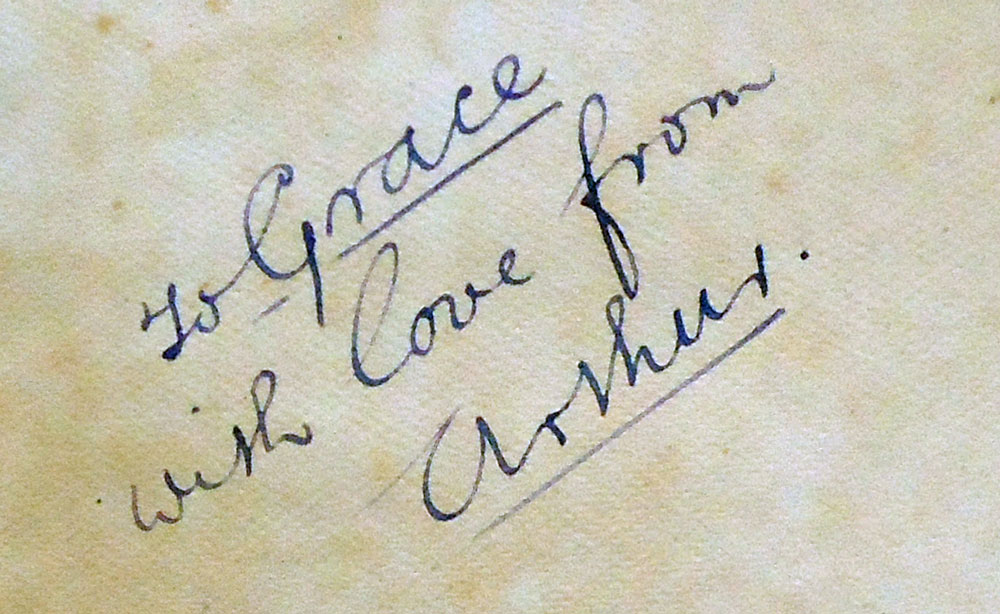 To Grace
with love from
Arthur.